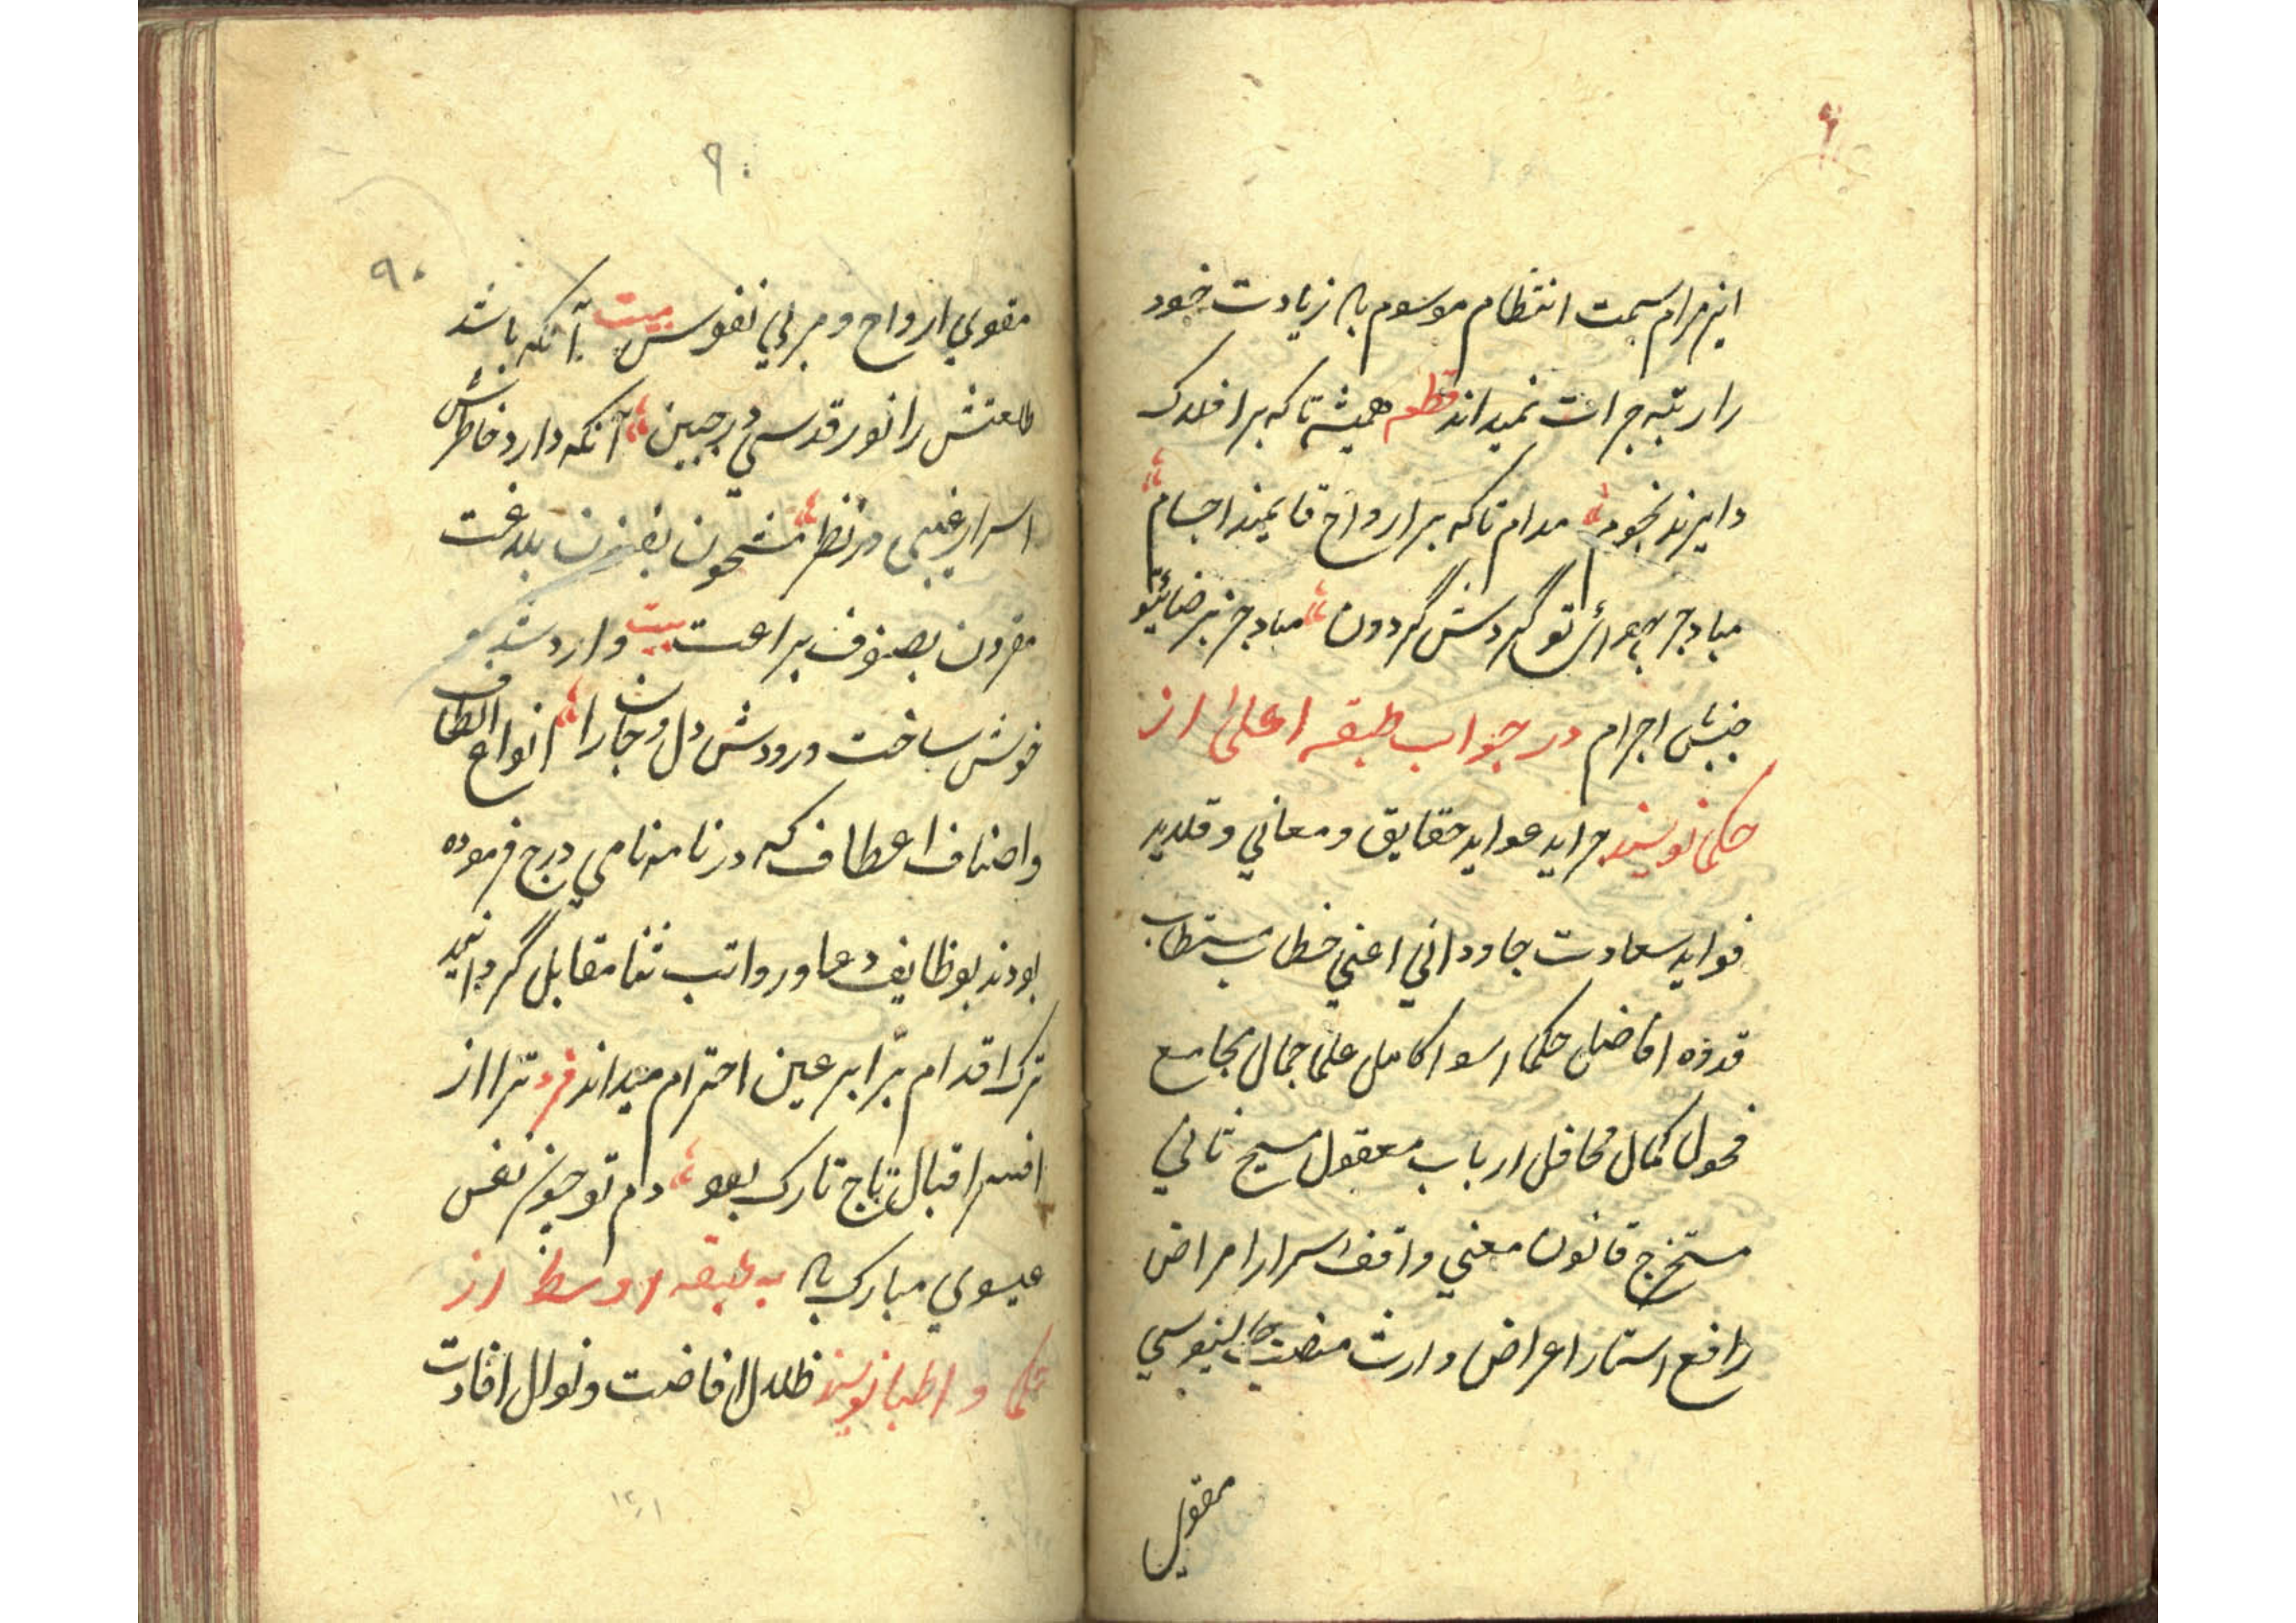 این مرام سمت انتظام موسوم باد زیادت خود
را رتبه جرات نمیداند قطعه همیشه تا که بر افلاک
دایرند نجوم مدام تا که بر ارواح قایمند اجسام
مباد جز بهوای تو گردش گردون مباد جز برضای تو
جنبش اجرام در جواب طبقه اعلی از
حکما نویسند جراید عواید حقایق و معانی و قلاید
فواید سعادت جاودانی اعنی خطاب مستطاب
قدوه افاضل حکما اسوه اکامل علما جمال مجامع
فحول کمال محافل ارباب معقول مسیح ثانی
مستخرج قانون معنی واقف اسرار امراض
رافع استار اعراض وارث منصب جالینوسی
مقوی
۹۰
۹۰
مقوی ارواح و مربی نفوس بیت آنکه باشد
طلعتش را نور قدسی در جبین آنکه دارد خاطرش
اسرار غیبی در نظر مشحون بفنون بلاغت
مقرون بصنوف براعت بیت وارد شد و
خوش ساخت ورودش دل و جان را انواع الطاف
و اصناف اعطاف که در نامه نامی درج فرموده
بودند بوظایف دعا و رواتب ثنا مقابل گردانید
ترک اقدام برابر عین احترام میداند فرد ترا از
افسر اقبال تاج تارک بود دم تو چون نفس
عیسوی مبارک باد به طبقه اوسط از
حکما و اطبا نویسند ظلال افاضت و نوال افادت